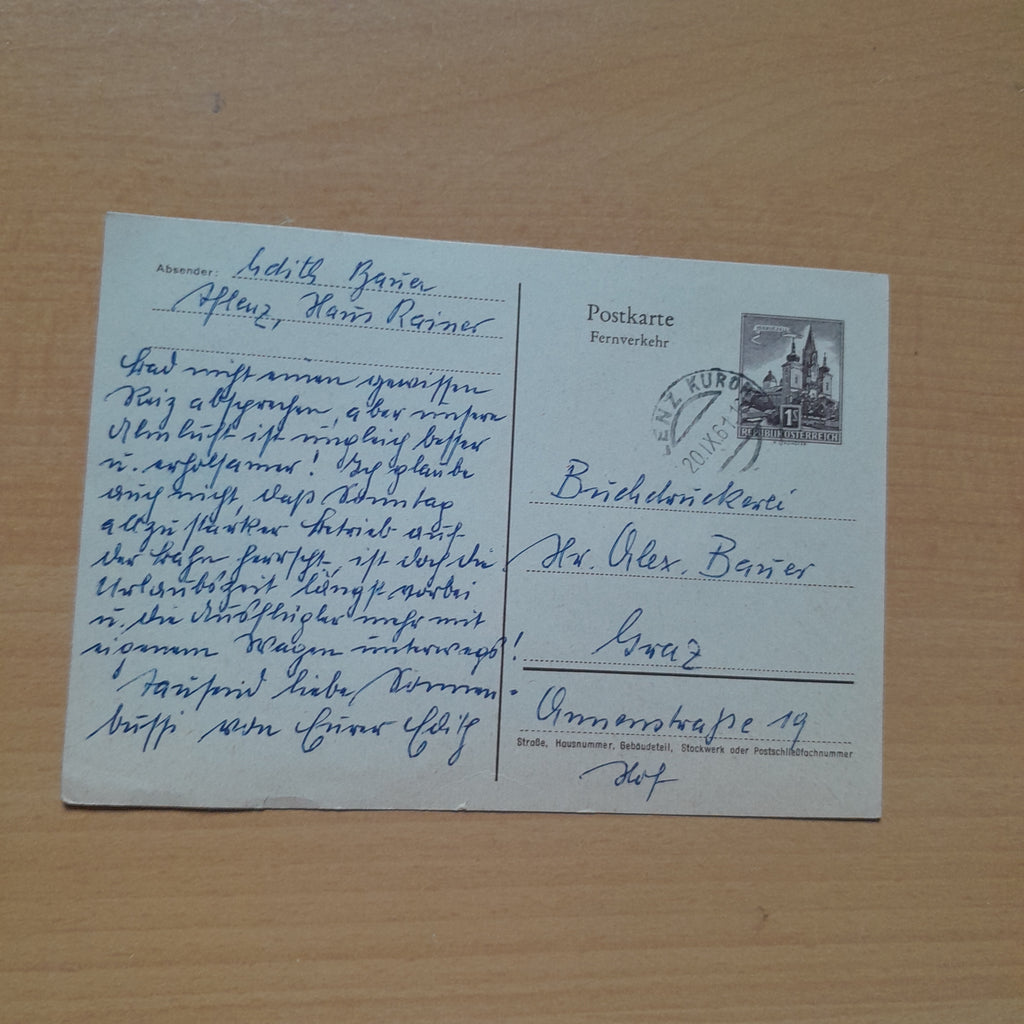 Absender: Edith Bauer
Aflenz, Haus Rainer
Bad nicht einen gewissen
Reiz absprechen, aber unsere
Almluft ist ungleich besser
u. erholsamer! Ich glaube
auch nicht, daß Sonntag
allzu starker Betrieb auf
der Bahn herrscht, ist doch die
Urlaubszeit längst vorbei
u. die Ausflügler mehr mit
eigenem Wagen unterwegs!
Tausend liebe Sonnen-
bussi von Eurer Edith
Postkarte
Fernverkehr
MARIAZELL
1S
REPUBLIK ÖSTERREICH
ENZ KURO
20.IX.61
Buchdruckerei
Hr. Alex. Bauer
Graz
Annenstraße 19
Straße, Hausnummer, Gebäudeteil, Stockwerk oder Postschließfachnummer
Hof